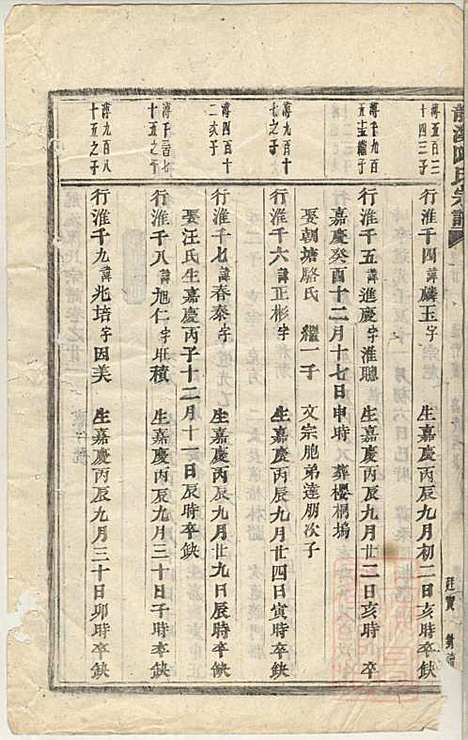 宗譜
溥五百三
十四三子
行淮千四諱麟玉字　生嘉慶丙辰九月初二日亥時卒缺
溥千九百
行淮千五諱進慶字淮聰　生嘉慶丙辰九月廿二日亥時　卒
嘉慶癸酉十二月十七日申時　葬櫻桐塢
娶朝塘駱氏　繼一子　文宗胞弟達朋次子
溥九百十
七之子
行淮千六諱正彬字　生嘉慶丙辰九月廿四日寅時卒缺
溥四百十
二次子
行淮千七諱春泰字　生嘉慶丙辰九月廿九日辰時卒缺
娶汪氏生嘉慶丙子十二月十一日辰時卒缺
溥千百七
十五之子
行淮千八諱旭仁字旺積　生嘉慶丙辰九月三十日子時卒缺
溥九百八
十五之子
行淮千九諱兆培字因美　生嘉慶丙辰九月三十日卯時卒缺